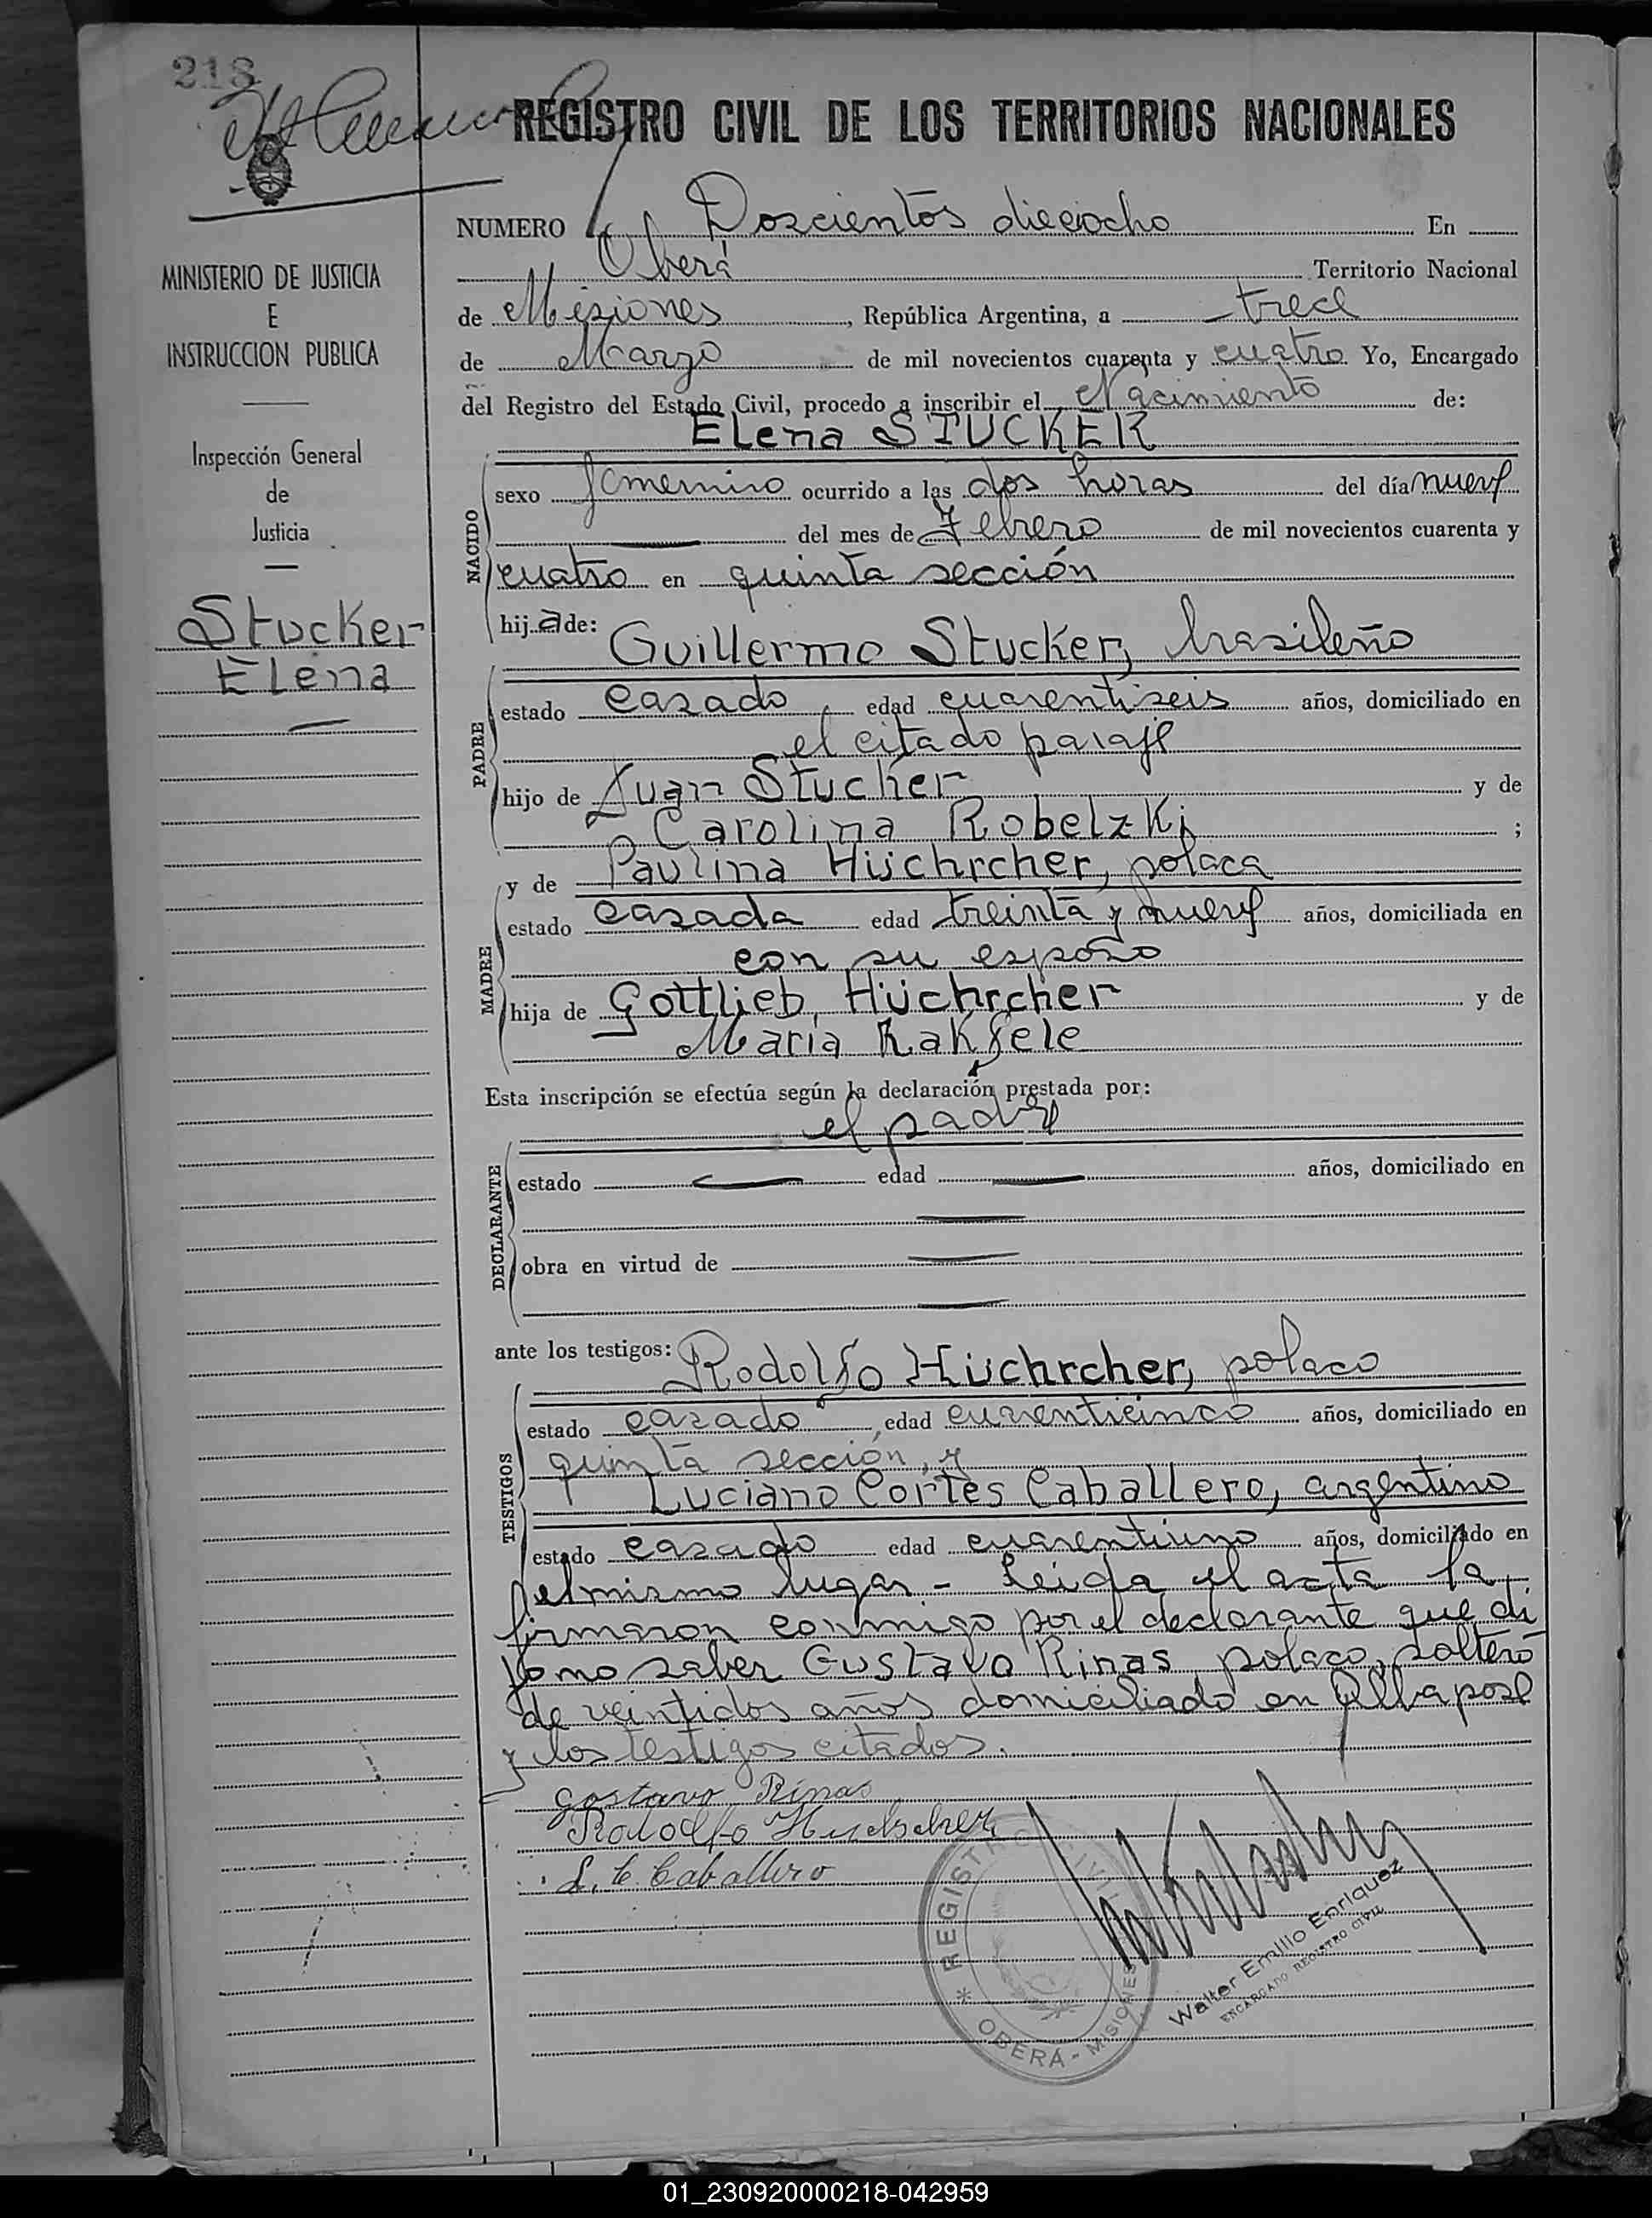 218
REGISTRO CIVIL DE LOS TERRITORIOS NACIONALES
MINISTERIO DE JUSTICIA
E
INSTRUCCION PUBLICA
Inspección General
de
Justicia
Stucker
Elena
NUMERO Doscientos dieciocho En
Oberá Territorio Nacional
de Misiones, República Argentina, a trece
de Marzo de mil novecientos cuarenta y cuatro Yo, Encargado
del Registro del Estado Civil, procedo a inscribir el Nacimiento de:
Elena STUCKER
NACIDO
sexo femenino ocurrido a las dos horas del día nueve
del mes de Febrero de mil novecientos cuarenta y
cuatro en quinta sección
hija de: Guillermo Stucker, brasileño
PADRE
estado casado, edad cuarentiseis años, domiciliado en
el citado paraje
hijo de Juan Stucker y de
Carolina Robelzki ;
y de Paulina Hüchrcher, polaca
MADRE
estado casada edad treinta y nueve años, domiciliada en
con su esposo
hija de Gottlieb Hüchrcher y de
Maria Rakfele
Esta inscripción se efectúa según la declaración prestada por:
el padre
DECLARANTE
estado edad años, domiciliado en
obra en virtud de
ante los testigos: Rodolfo Hüchrcher, polaco
TESTIGOS
estado casado, edad cuarenticinco años, domiciliado en
quinta sección, y
Luciano Cortes Caballero, argentino
estado casado edad cuarentiuno años, domiciliado en
el mismo lugar - Leida el acta la
firmaron conmigo por el declarante que di
jo no saber Gustavo Rinas, polaco, soltero
de veintidos años domiciliado en
y los testigos citados.
Gostavo Rinas
Rodolfo Huchscher
L. C. Caballero
REGISTRO CIVIL
* OBERÁ - MISIONES
Walter Emilio Enriquez
ENCARGADO REGISTRO CIVIL
01_230920000218-042959